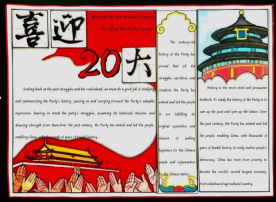 喜迎
20大
Welcome the 20th National Congress
to follow the Party forever
Looking back at the past struggles and the road ahead, we must do a good job of studying
and summarizing the Party's history, passing on and carrying forward the Party's valuable
experience, bearing in mind the party's struggle, assuming its historical mission, and
drawing strength from them. Over the past century, the Party has united and led the people
enabling China, with thousands of years of feudal history
The century-old
history of the Party has
proved that all the
struggles, sacrifices, and
creations the Party has
united and led the people
over the past century
are fulfilling its
original aspiration and
mission of seeking
happiness for the Chinese
people and rejuvenation
for the Chinese nation.
History is the most vivid and persuasive
textbook. To study the history of the Party is to
sum up the past and open up the future. Over
the past century, the Party has united and led
the people, enabling China, with thousands of
years of feudal history, to truly realize people's
democracy. China has risen from poverty to
become the world's second largest economy,
from a backward agricultural country